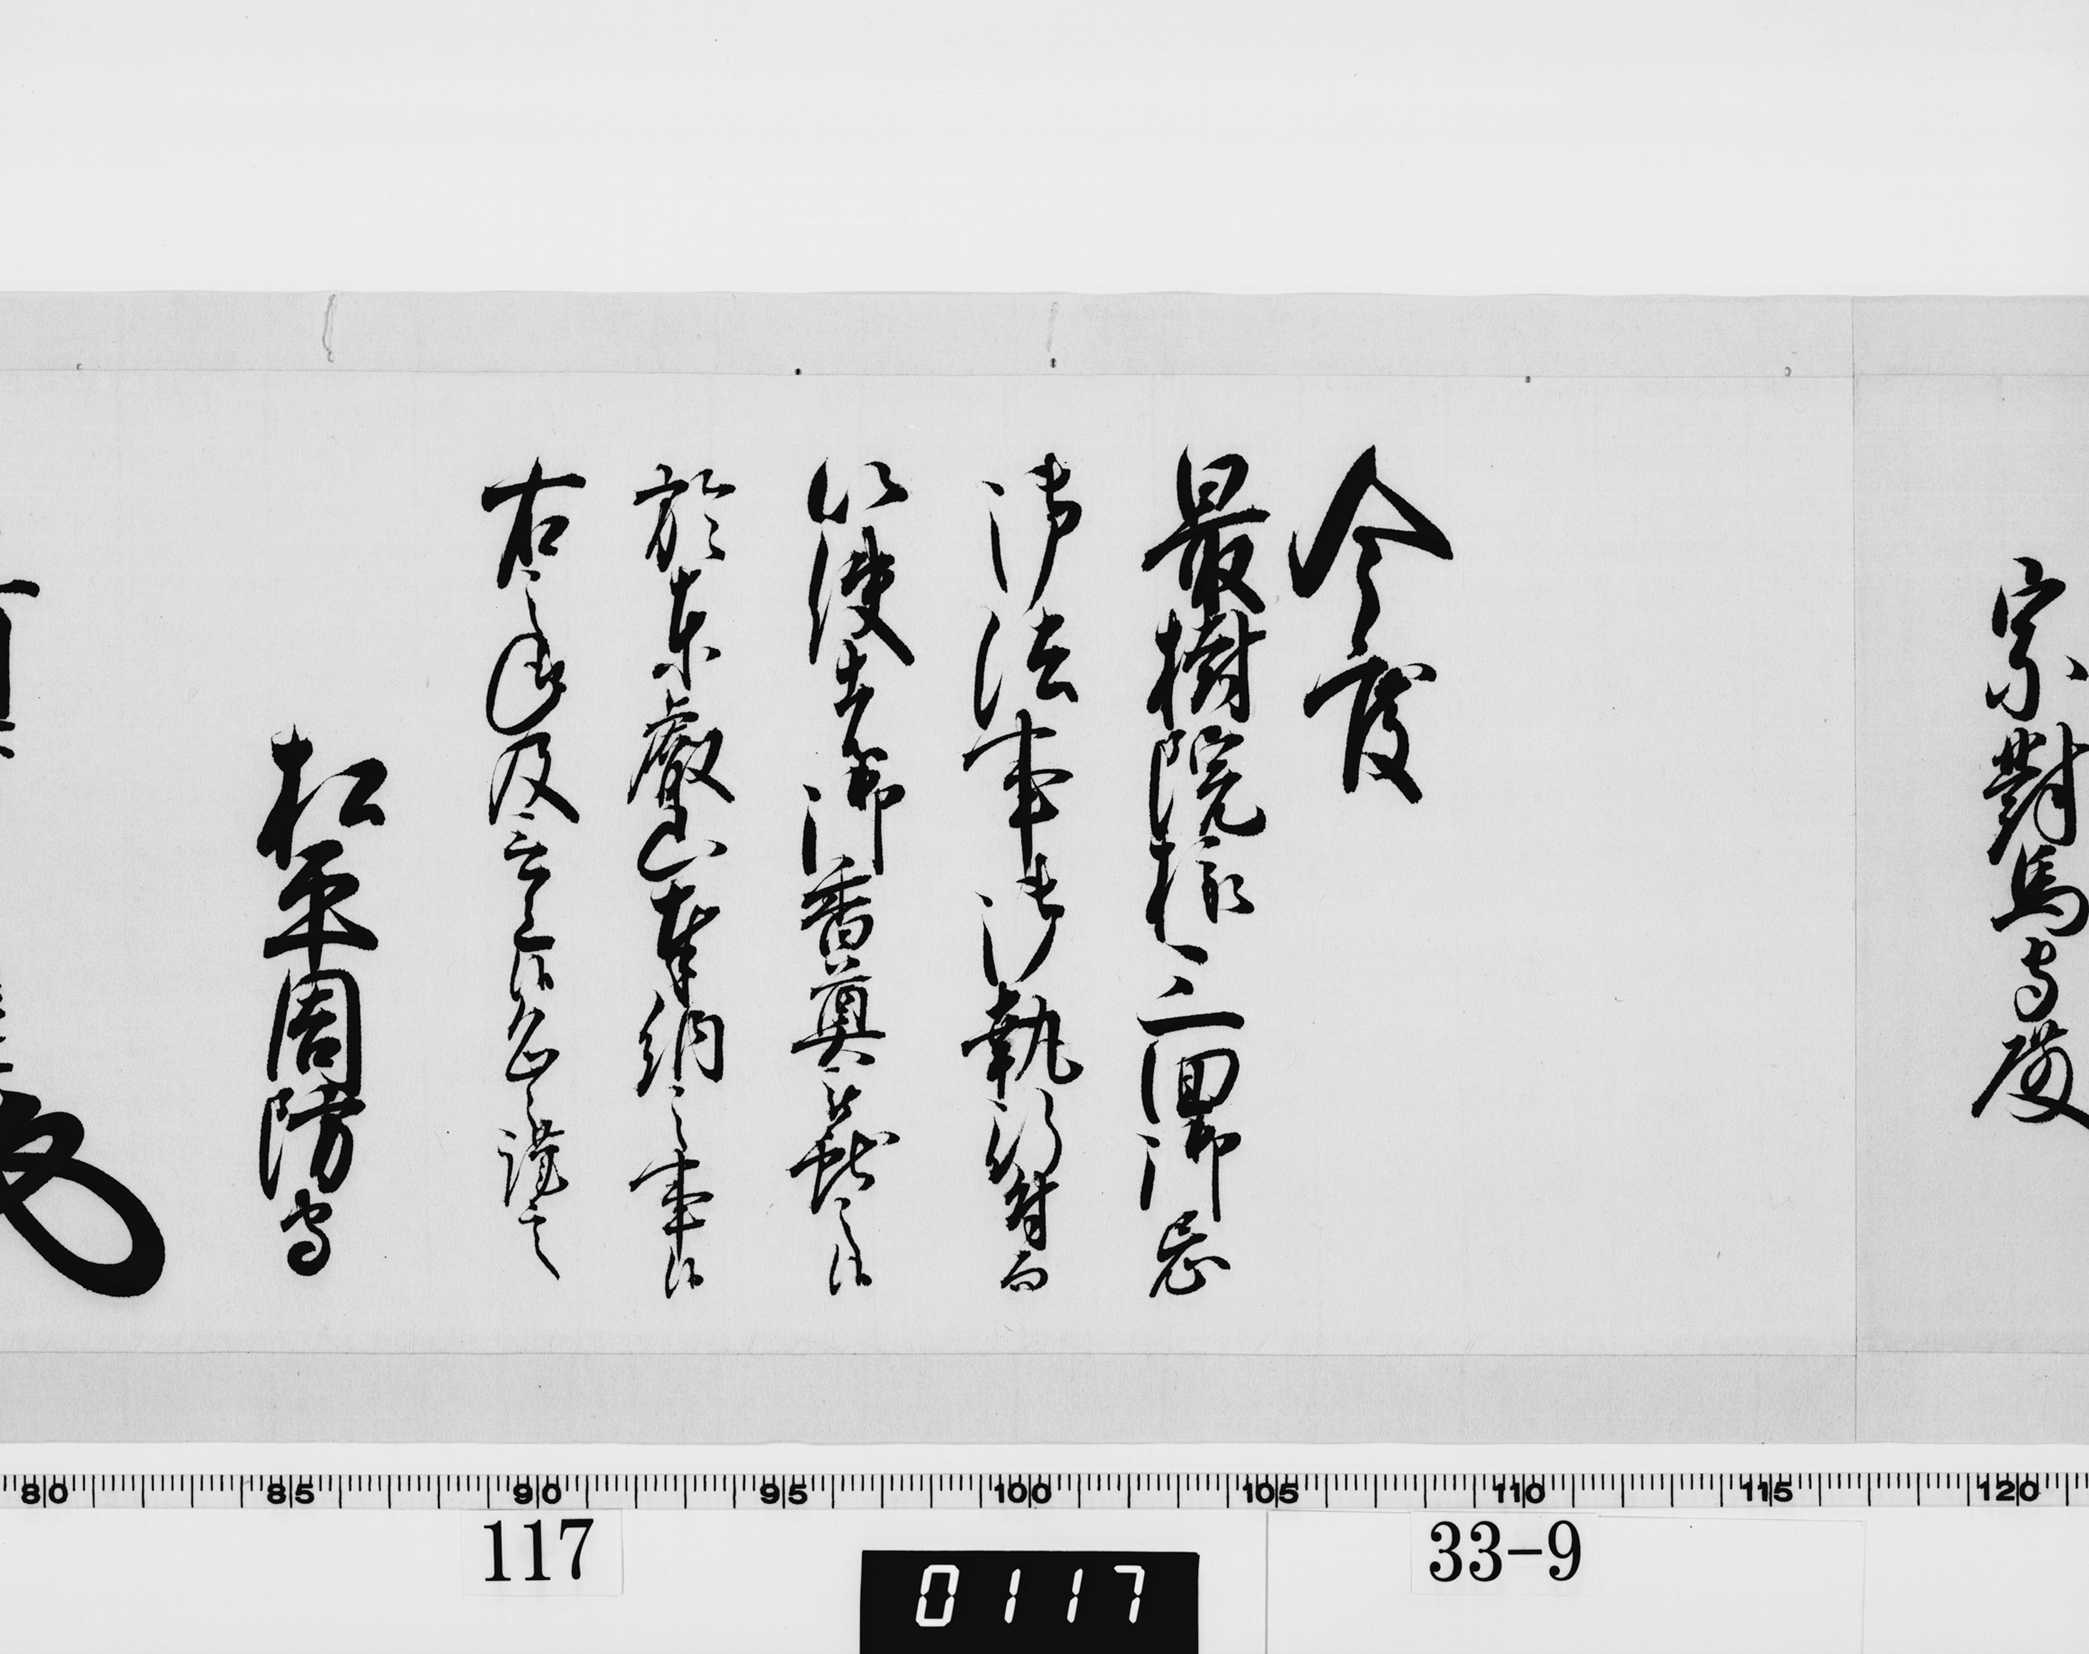 宗對馬守殿
今度
最樹院様三回御忌
御法事御執行付而
以使者御香奠被献之候
於東叡山奉納之事候
右之段及言上候処
松平周防守
80 85 90 95 100 105 110 115 120
117
33-9
0117